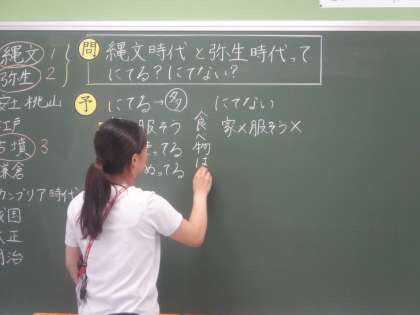 縄文 1
弥生 2
安土桃山
江戸
古墳 3
鎌倉
カンブリア時代
戦国
大正
明治
問 縄文時代と弥生時代って
にてる?にてない?
予 にてる→多 にてない
服そう 家×服そう×
ってる
ぬってる
食べ物は